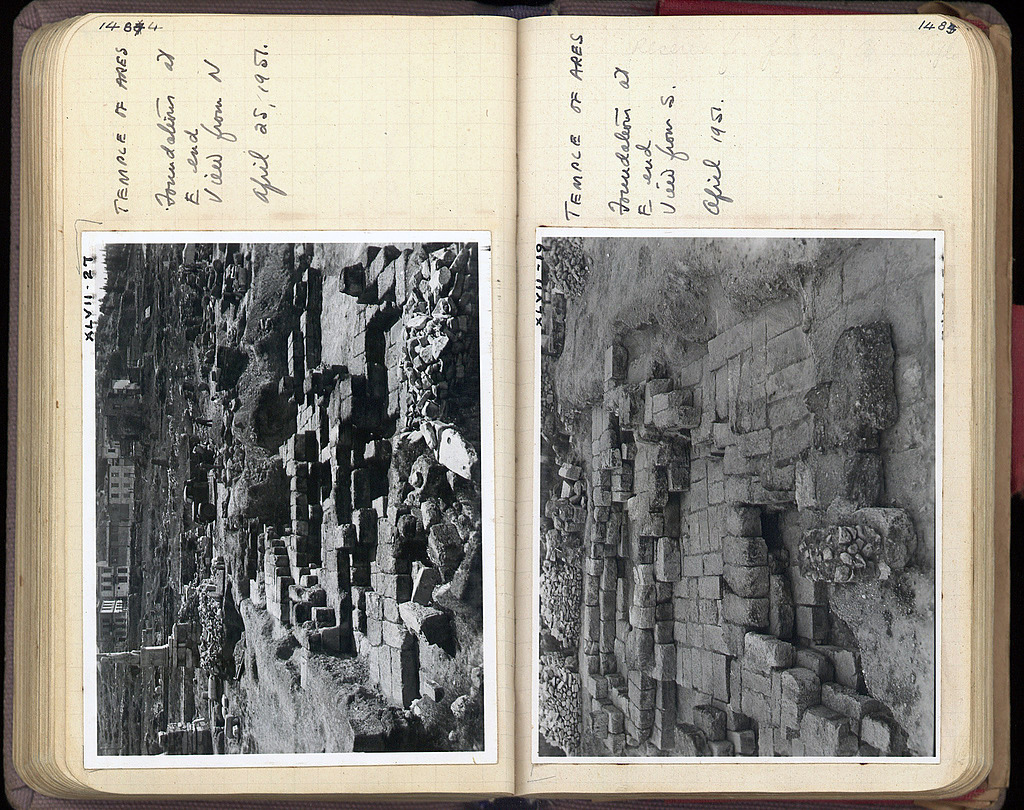 1484
TEMPLE OF ARES
Foundation at
E end
View from N
April 25, 1951.
XLVII-27
1485
TEMPLE OF ARES
Foundation at
E end
View from S.
April 1951.
XLVII-19